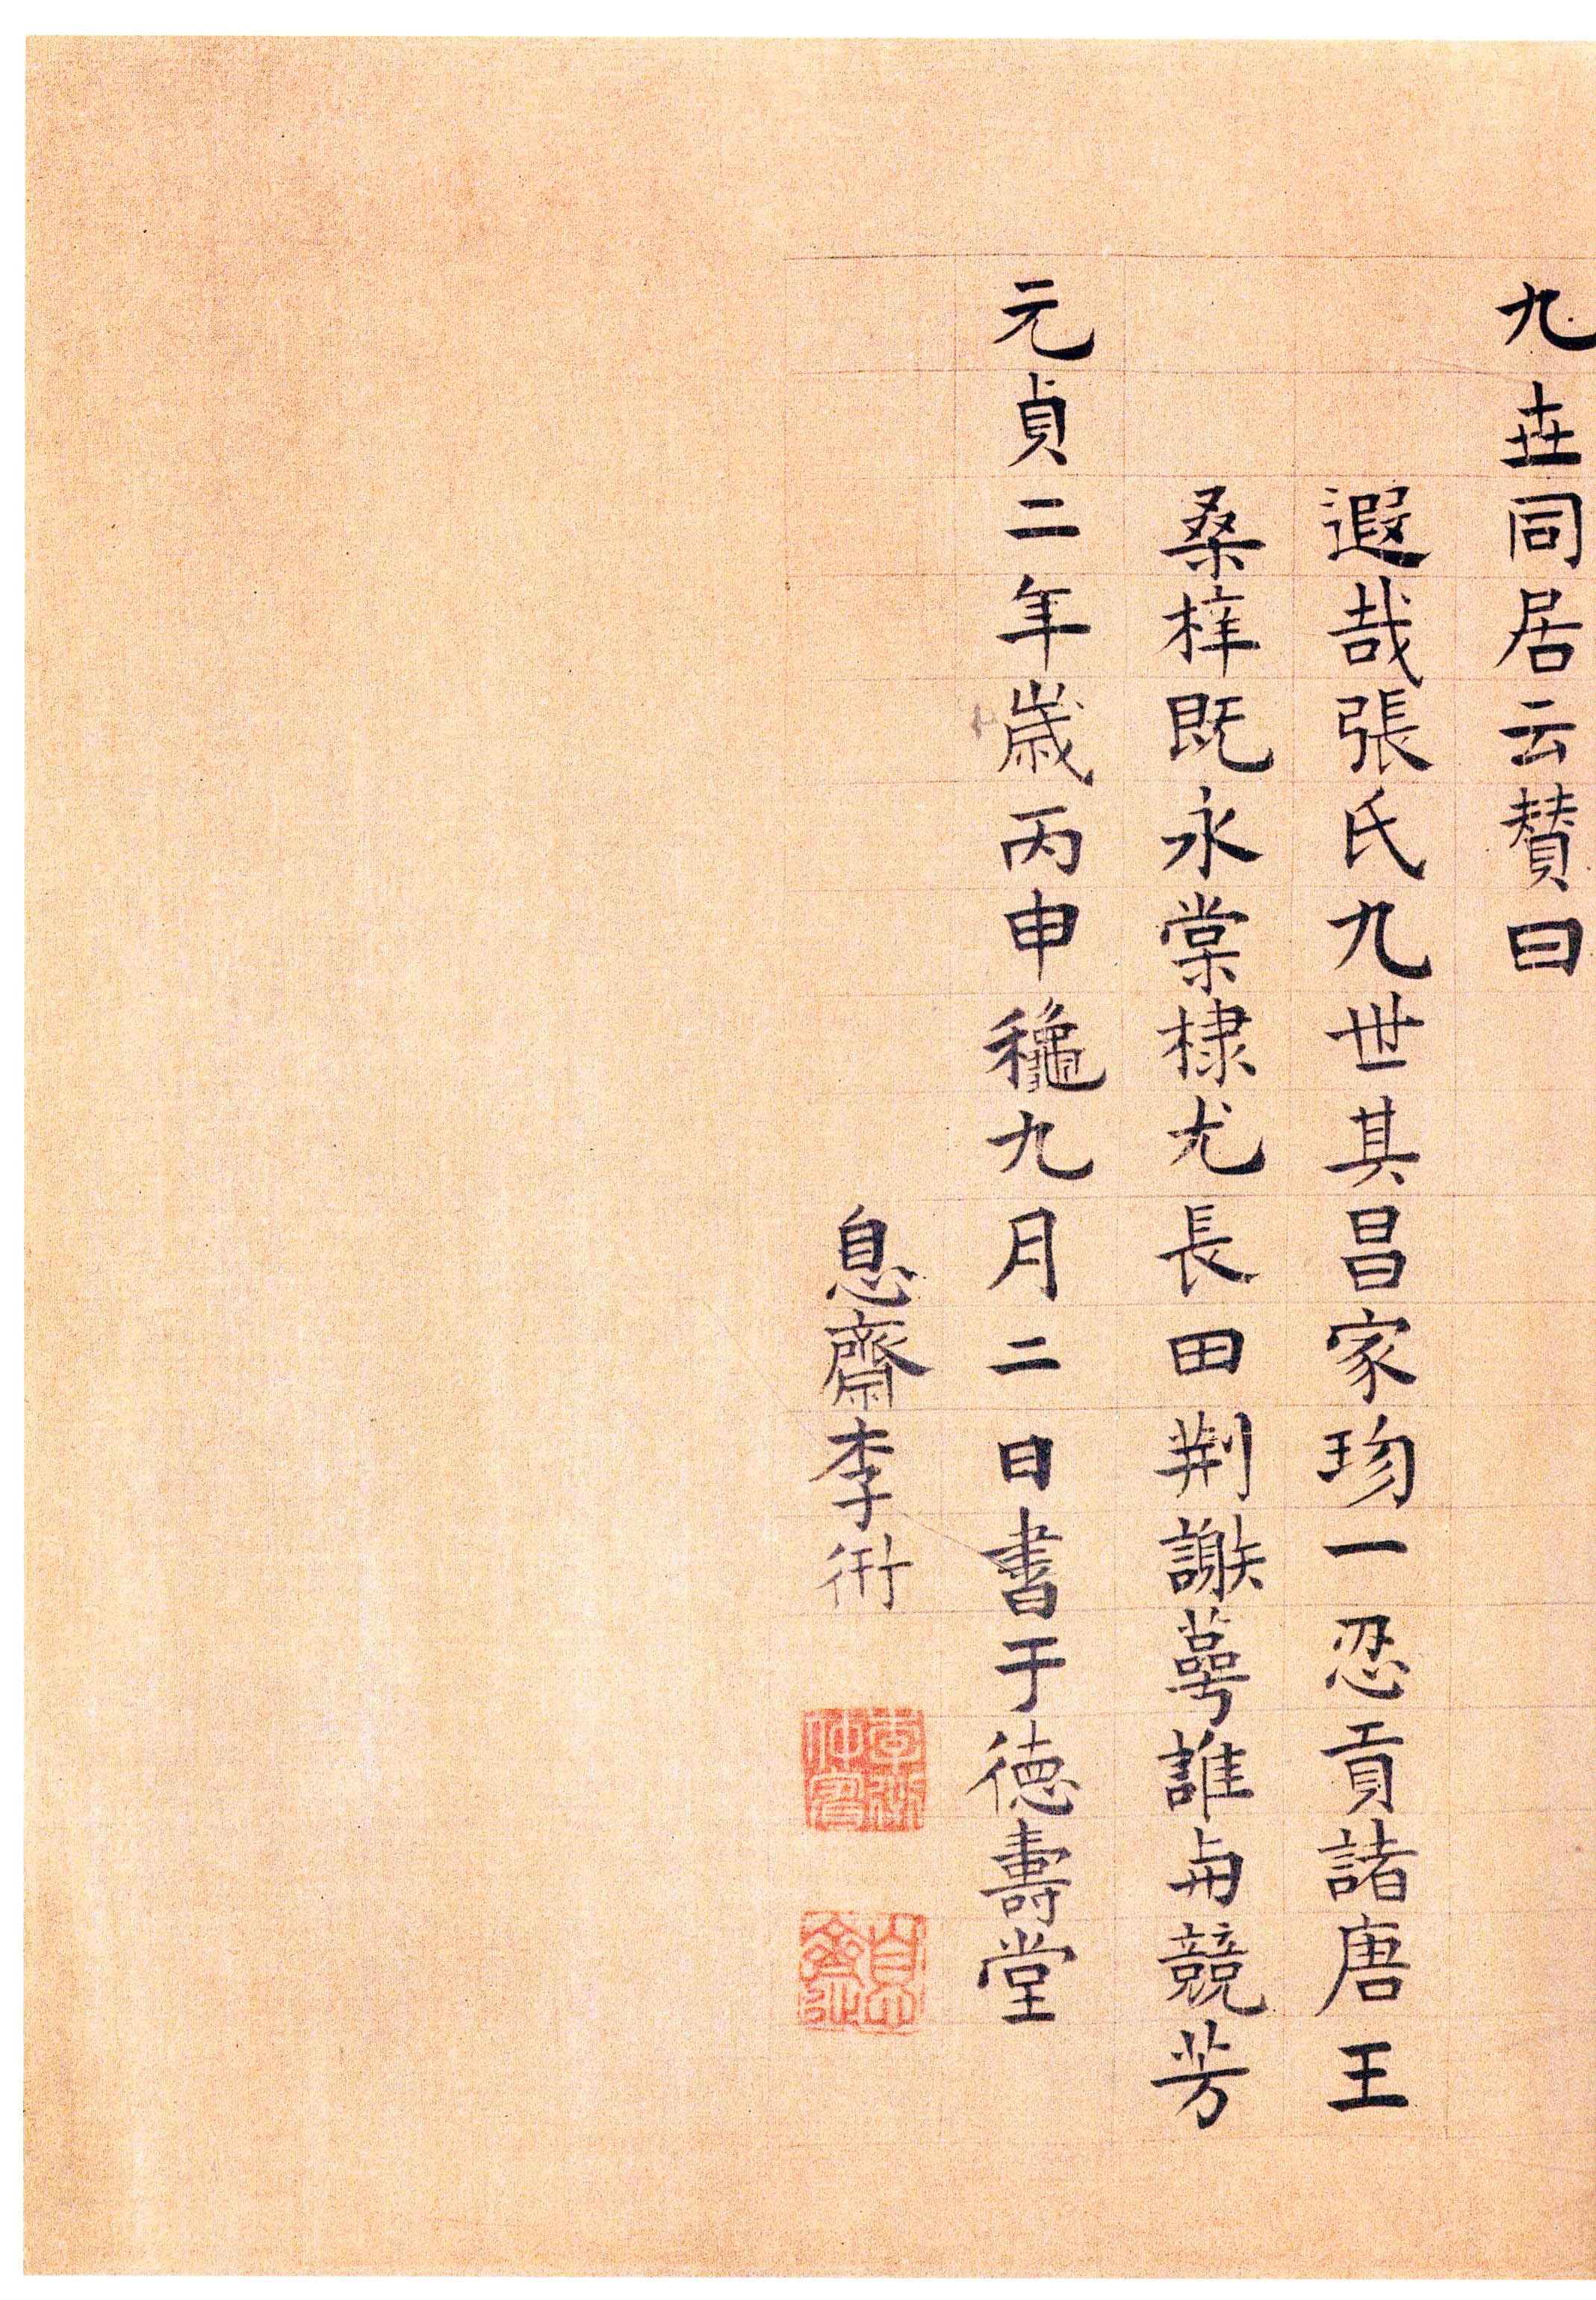 九卋同居云賛曰
遐哉張氏九世其昌家珍一忍貢諸唐王
桑梓既永棠棣尤長田荆謝萼誰与競芳
元貞二年歲丙申穐九月二日書于徳壽堂
息齋李衎
李衎仲賓
息齋